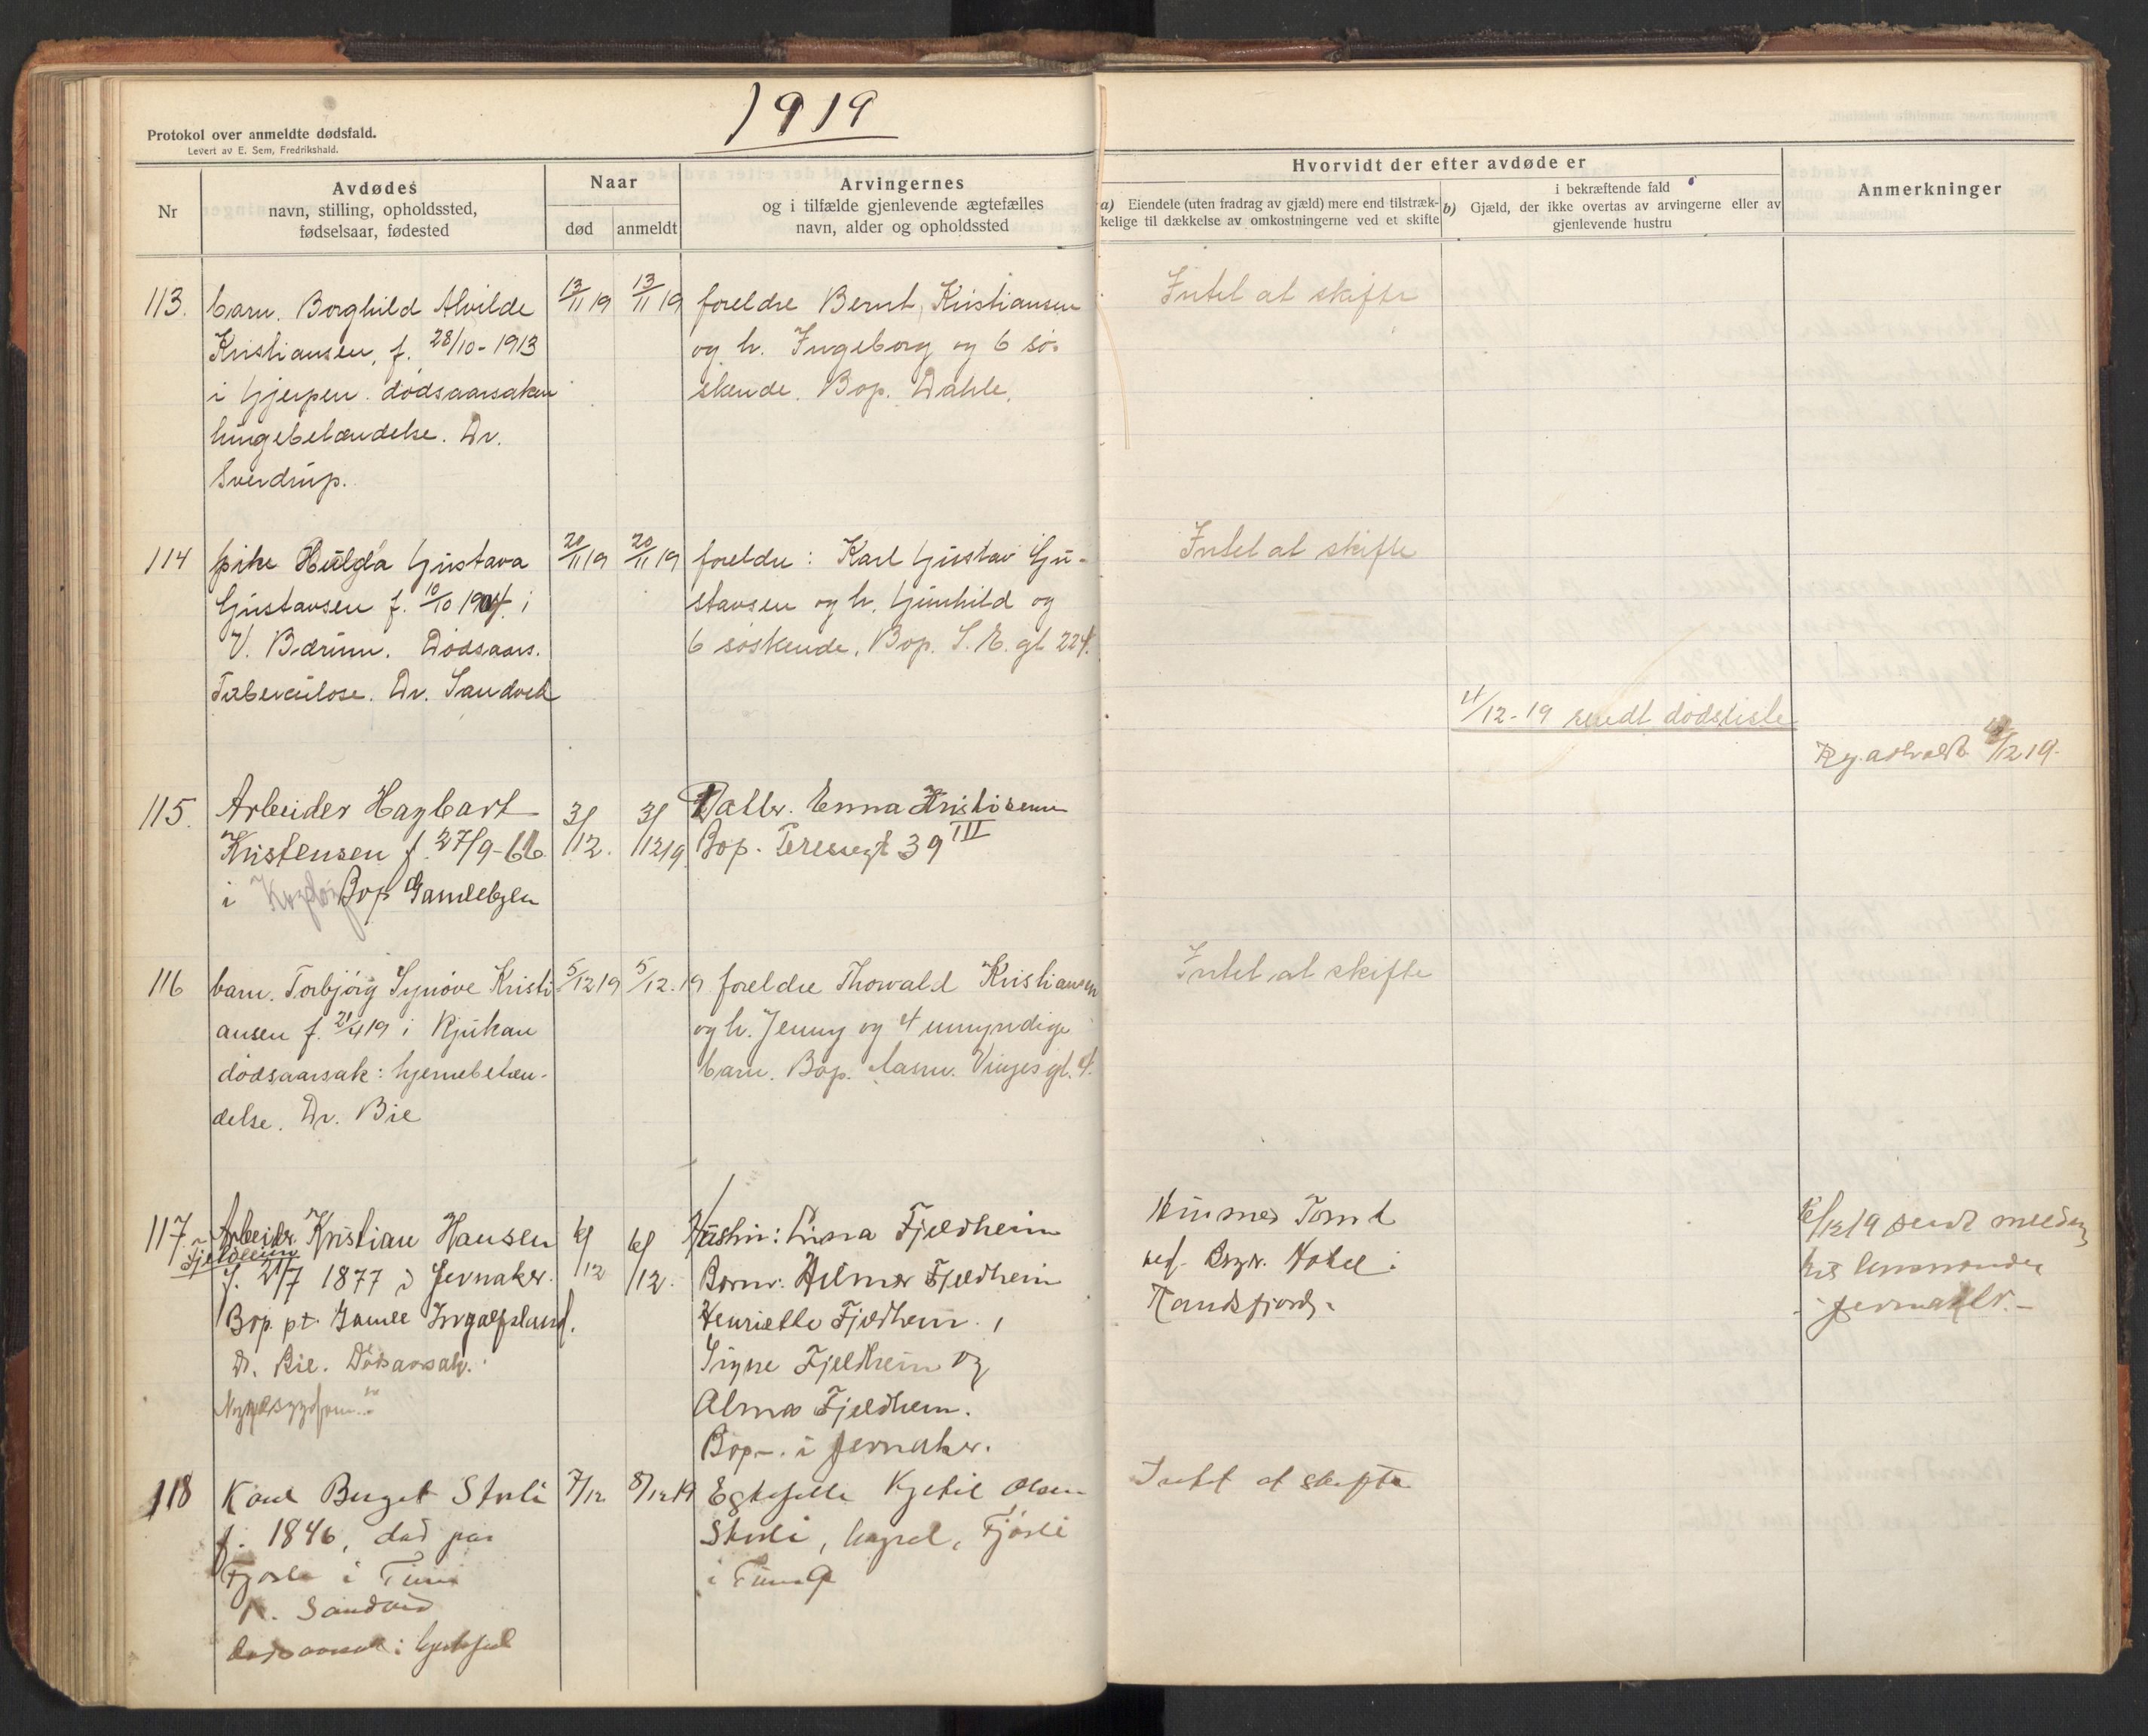 1919
Protokol over anmeldte dødsfald.
Levert av E. Sem, Fredrikshald.
Nr
Avdødes
navn, stilling, opholdssted,
fødselsaar, fødested
Naar
død
anmeldt
Arvingernes
og i tilfælde gjenlevende ægtefælles
navn, alder og opholdssted
Hvorvidt der efter avdøde er
a) Eiendele (uten fradrag av gjæld) mere end tilstræk-
kelige til dækkelse av omkostningerne ved et skifte
i bekræftende fald
b) Gjæld, der ikke overtas av arvingerne eller av
gjenlevende hustru
Anmerkninger
113.
barn. Borghild Alvilde
Kristiansen, f. 28/10-1913
i Gjerpen. dødsaarsaken
lungebetændelse. Dr.
Sverdrup.
13/11 19
13/11 19
foreldre Bernt Kristiansen
og h. Ingeborg og 6 sø-
skende. Bop. Dahle.
Intet at skifte
114
pike Hulda Gustava
Gustavsen f. 10/10 1904 i
V. Bærum. Dødsaars.
Tuberculose. Dr. Sandvik
20/11 19
20/11 19
foreldre: Karl Gustav Gu-
stavsen og h. Gunhild og
6 søskende. Bop. S. E. gt 224.
Intet at skifte
4/12-19 sendt dødsliste
/12 19.
115.
Arbeider Hagbart
Kristensen f. 27/9-66
i Bop Gamlebyen
3/12.
3/12 19
Datter. Enna Kristisenn
Bop. 39 III
116
barn. Torbjörg Synøve Kristi
ansen f. 21/4 19 i Rjukan
dødsaarsak: hjernebetæn-
delse. Dr. Bie
5/12 19
5/12.19
foreldre Thorvald Kristiansen
og h. Jenny og 4 umyndige
barn. Bop. Aasm. Vinjesgt. 4.
Intet at skifte
117.
Arbeider Kristian Hansen
Fjeldheim
f. 21/7 1877 i Jevnaker.
Bop. pt. Gamle Ingolfsland.
Dr. Bie. Dødsaarsak.
6/12
6/12.
Hustru: Fjeldheim
Barn: Hilmar Fjeldheim
Henriette Fjeldheim,
Signe Fjeldheim og
Alma Fjeldheim.
Bop. i Jevnaker.
Tomt
Randsfjord.
/12 19 sendt
Jevnaker.
118
Kone Birgit
f. 1846, død paa
i Tinn
Dr. Sandvik
Dødsaarsak:
7/12
8/12 19
Egtefelle Kjetil Olsen
i Tinn
Intet at skifte